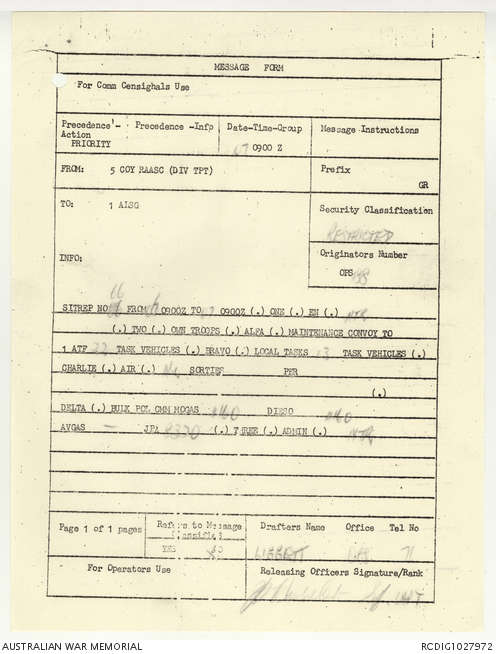 MESSAGE FORM
For Comm Censighals Use
Precedence'-
Action
PRIORITY
Precedence -Info
Date-Time-Group
0900 Z
Message Instructions
FROM: 5 COY RAASC (DIV TPT)
Prefix
GR
TO: 1 ALSG
Security Classification
RESTRICTED
INFO:
Originators Number
OPS
SITREP NO 66 FROM 0900Z TO 0900Z (.) ONE (.) EN (.) NTR
(.) TWO (.) OWN TROOPS (.) ALFA (.) MAINTENANCE CONVOY TO
1 ATF 22 TASK VEHICLES (.) BRAVO (.) LOCAL TASKS 13 TASK VEHICLES (.)
CHARLIE (.) AIR (.) NIL SORTIES PER
(.)
DELTA (.) BULK POL CMM MOGAS DIESO
AVGAS — JPA (.) THREE (.) ADMIN (.) NTR
Page 1 of 1 pages
Refers to Message
Classified
YES NO
Drafters Name
Office
Tel No
71
For Operators Use
Releasing Officers Signature/Rank
AUSTRALIAN WAR MEMORIAL
RCDIG1027972